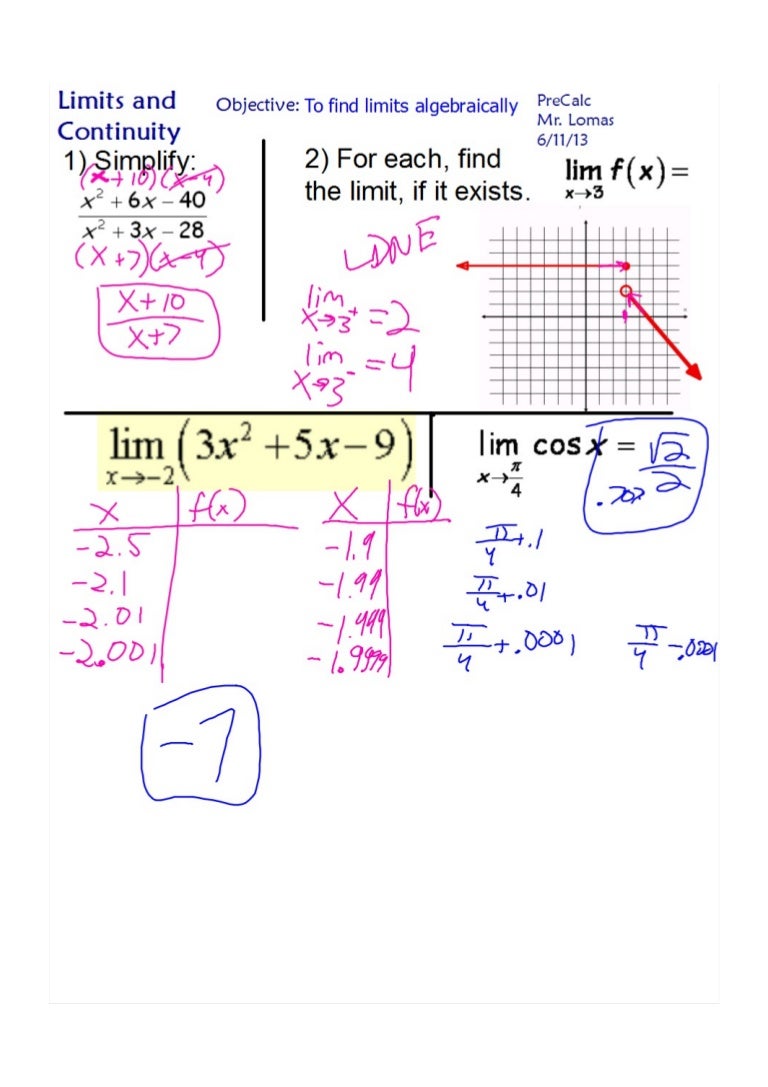 Limits and Continuity
Objective: To find limits algebraically
PreCalc
Mr. Lomas
6/11/13
1) Simplify:
(x+10)(x-4)
x² + 6x - 40
x² + 3x - 28
(x+7)(x-4)
x+10
x+7
2) For each, find
the limit, if it exists.
lim f(x) =
x→3
LDNE
lim = 2
x→3⁺
lim = 4
x→3⁻
lim (3x² +5x-9)
x→-2
x f(x)
-2.5
-2.1
-2.01
-2.001
x f(x)
-1.9
-1.99
-1.999
-1.9999
-7
lim cos x = √2/2
x→π/4
.707
π/4+.1
π/4+.01
π/4+.0001 π/4-.0001